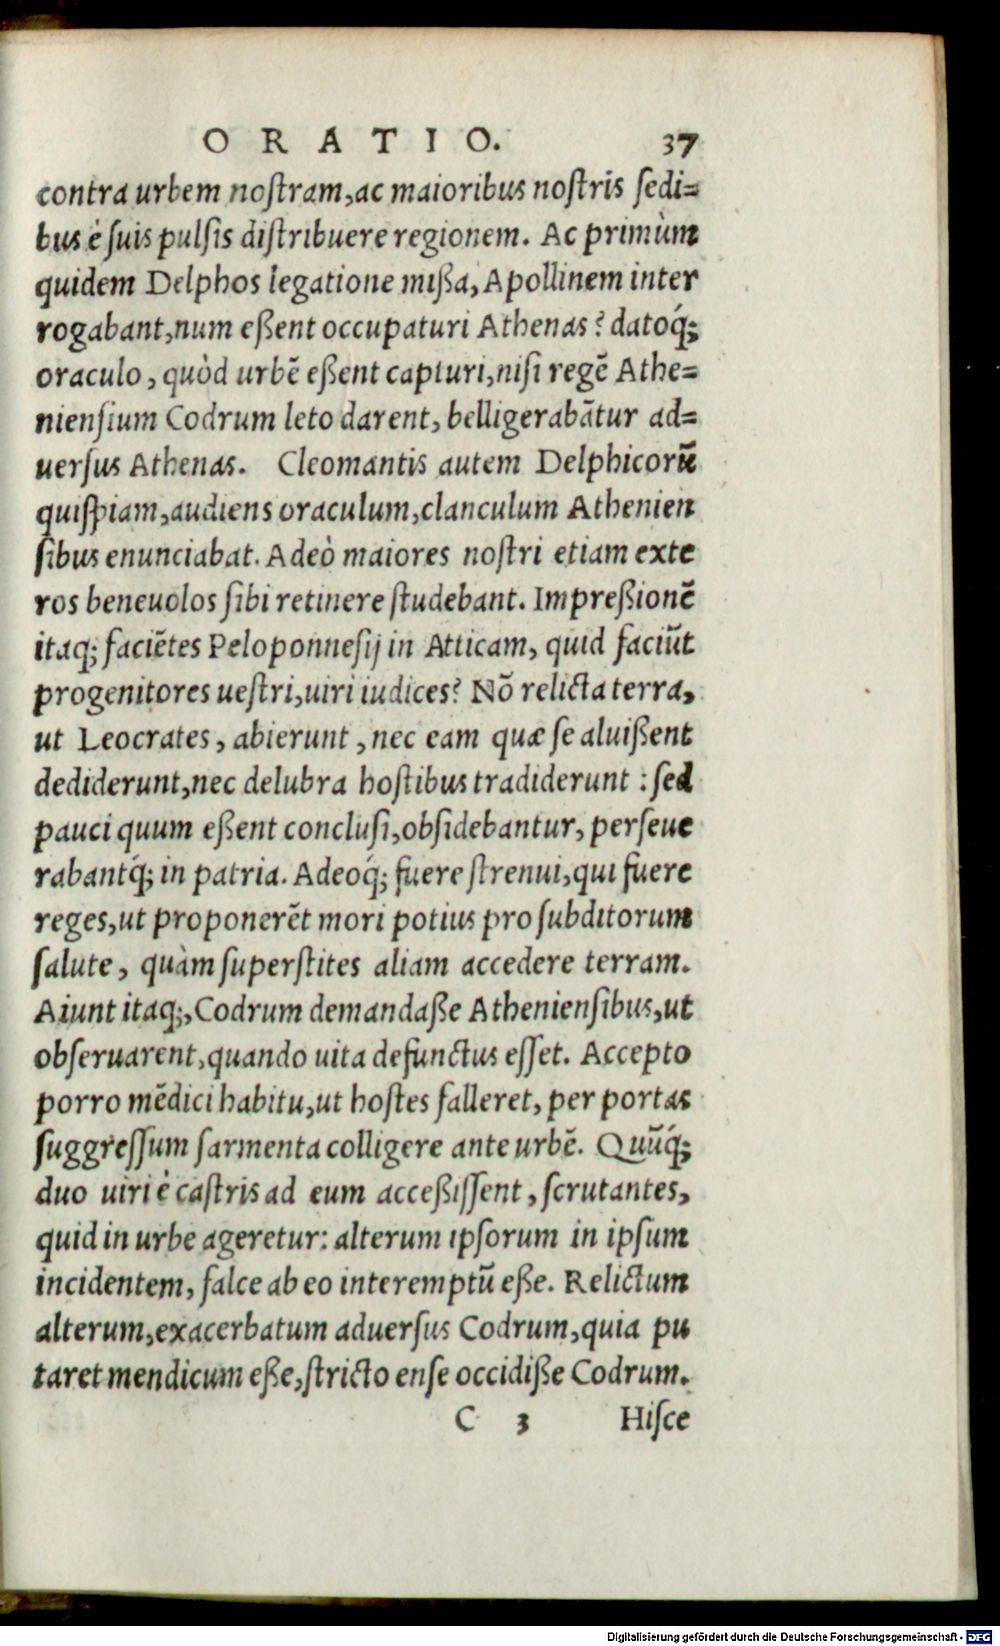 ORATIO. 37
contra urbem noſtram,ac maioribus noſtris ſedi=
bus è ſuis pulſis diſtribuere regionem. Ac primùm
quidem Delphos legatione mißa, Apollinem inter
rogabant,num eßent occupaturi Athenas? datoq́;
oraculo, quòd urbẽ eßent capturi,niſi regẽ Athe=
nienſium Codrum leto darent, belligerabãtur ad=
uerſus Athenas. Cleomantis autem Delphicorũ
quiſpiam,audiens oraculum,clanculum Athenien
ſibus enunciabat. Adeò maiores noſtri etiam exte
ros beneuolos ſibi retinere ſtudebant. Impreßionẽ
itaq; faciẽtes Peloponneſij in Atticam, quid faciũt
progenitores ueſtri,uiri iudices? Nõ relicta terra,
ut Leocrates, abierunt, nec eam quæ ſe aluißent
dediderunt,nec delubra hoſtibus tradiderunt: ſed
pauci quum eßent concluſi,obſidebantur, perſeue
rabantq́; in patria. Adeoq́; fuere ſtrenui,qui fuere
reges,ut proponerẽt mori potius pro ſubditorum
ſalute, quàm ſuperſtites aliam accedere terram.
Aiunt itaq;,Codrum demandaße Athenienſibus,ut
obſeruarent,quando uita defunctus eſſet. Accepto
porro mẽdici habitu,ut hoſtes falleret, per portas
ſuggreſſum ſarmenta colligere ante urbẽ. Quũq́;
duo uiri è caſtris ad eum acceßiſſent, ſcrutantes,
quid in urbe ageretur: alterum ipſorum in ipſum
incidentem, falce ab eo interemptũ eße. Relictum
alterum,exacerbatum aduerſus Codrum,quia pu
taret mendicum eße,ſtricto enſe occidiße Codrum.
C 3 Hiſce
Digitalisierung gefördert durch die Deutsche Forschungsgemeinschaft - DFG